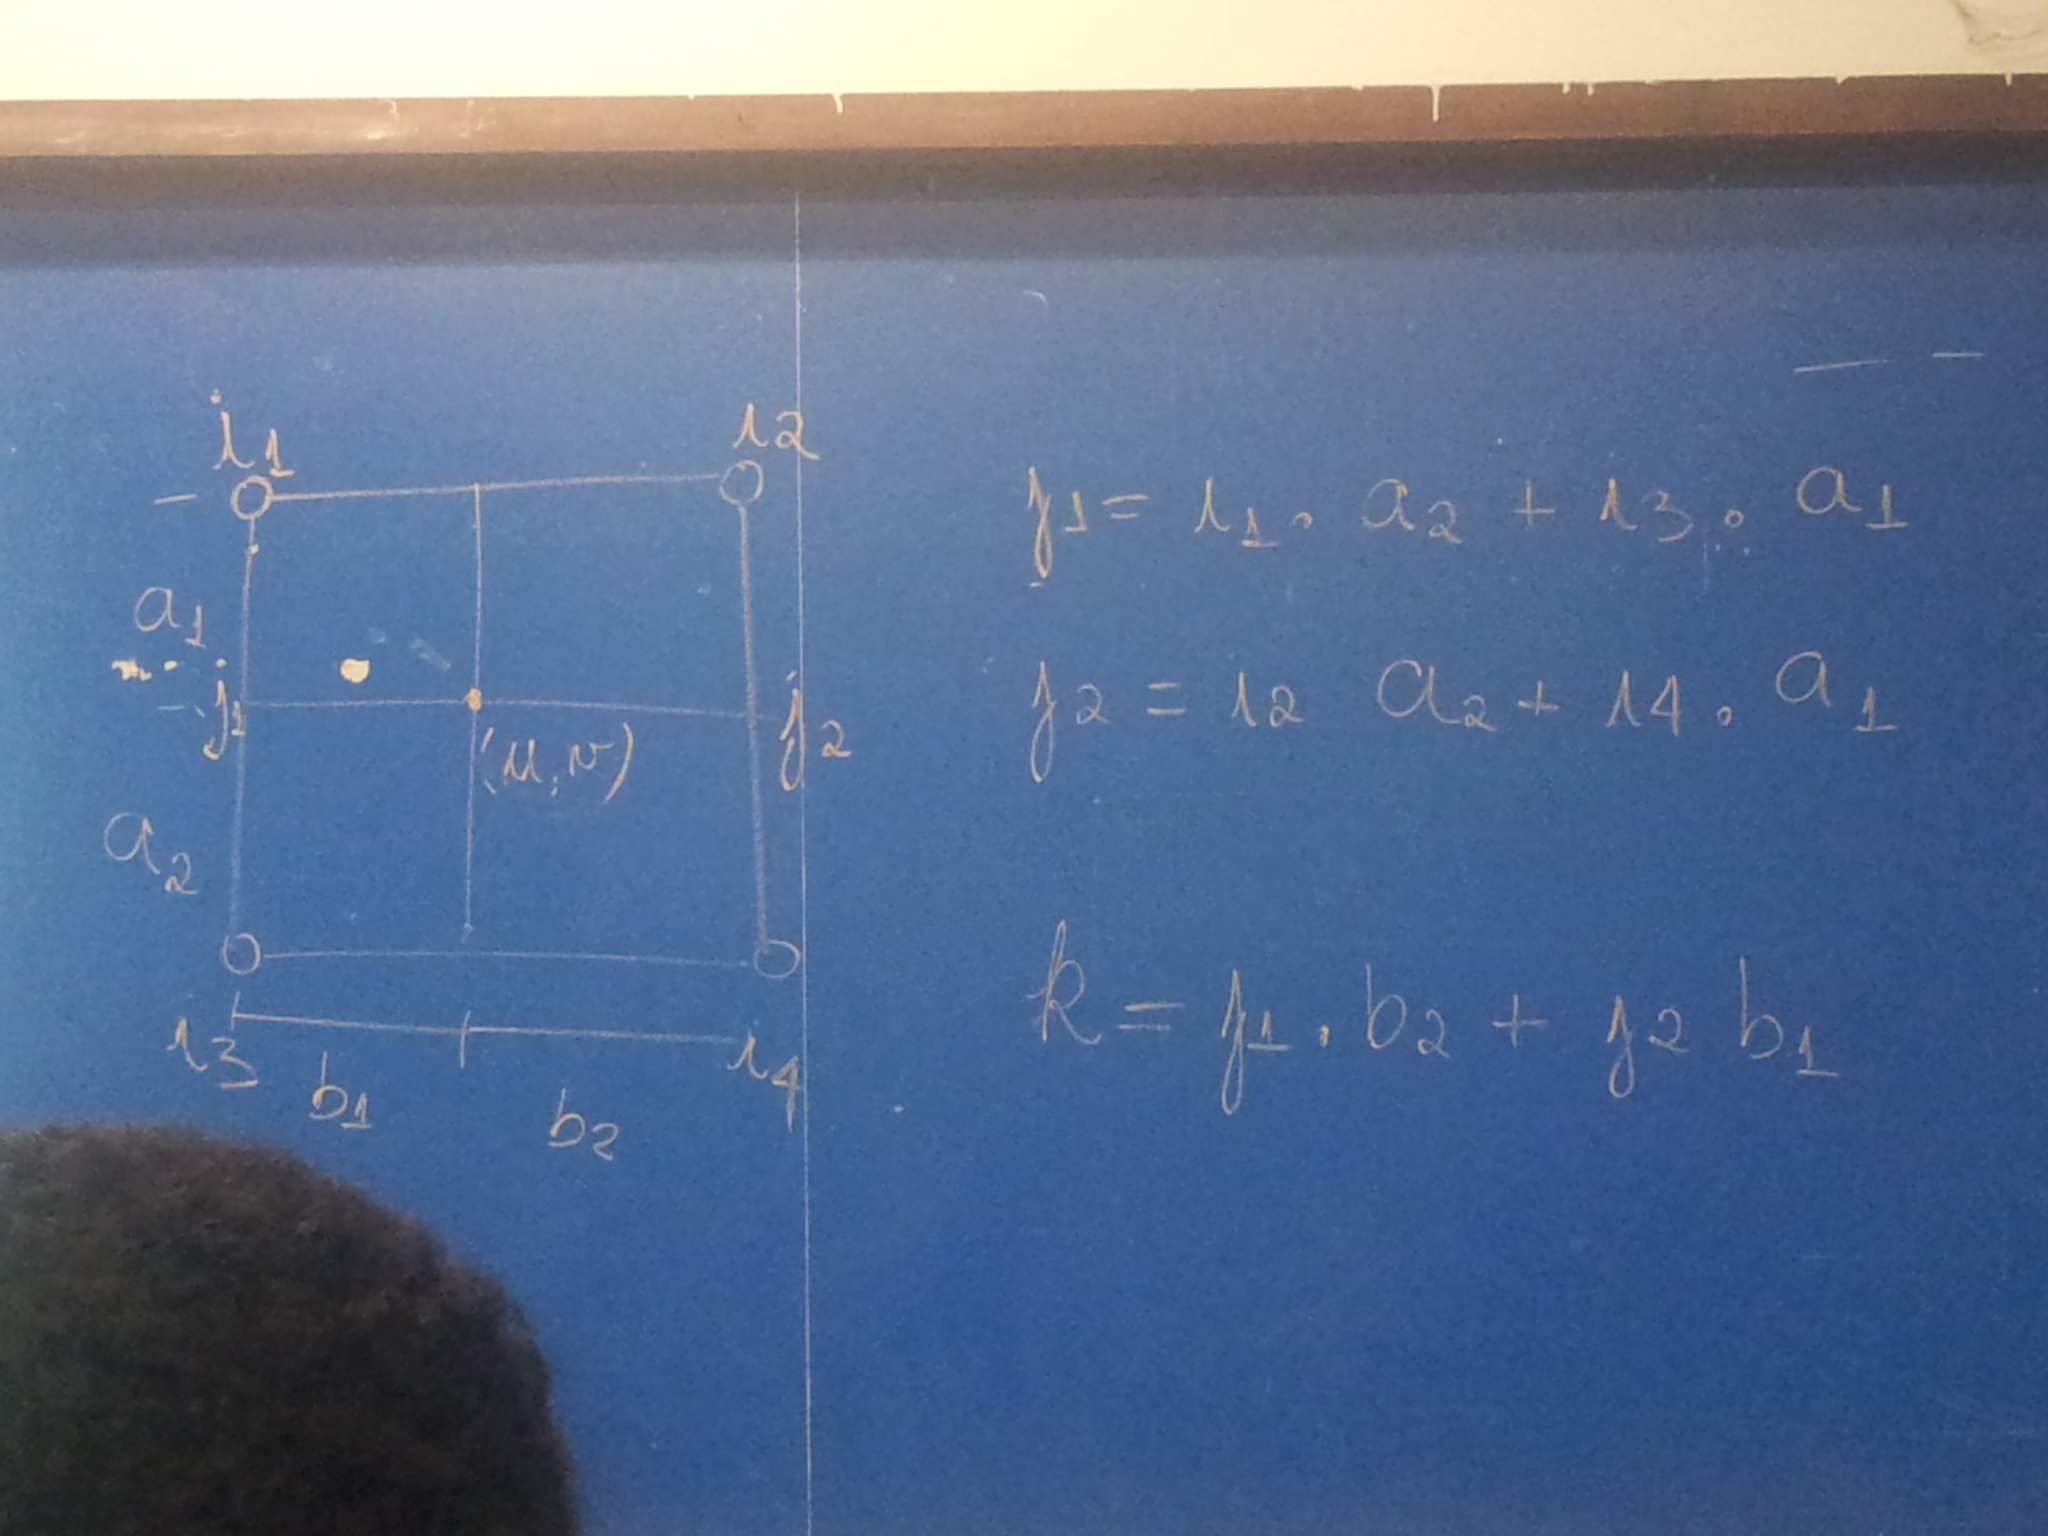 i1 i2
a1
j1 j2
(u,v)
a2
i3 i4
b1 b2
j1 = i1 . a2 + i3 . a1
j2 = i2 a2 + i4 . a1
k = j1 . b2 + j2 b1